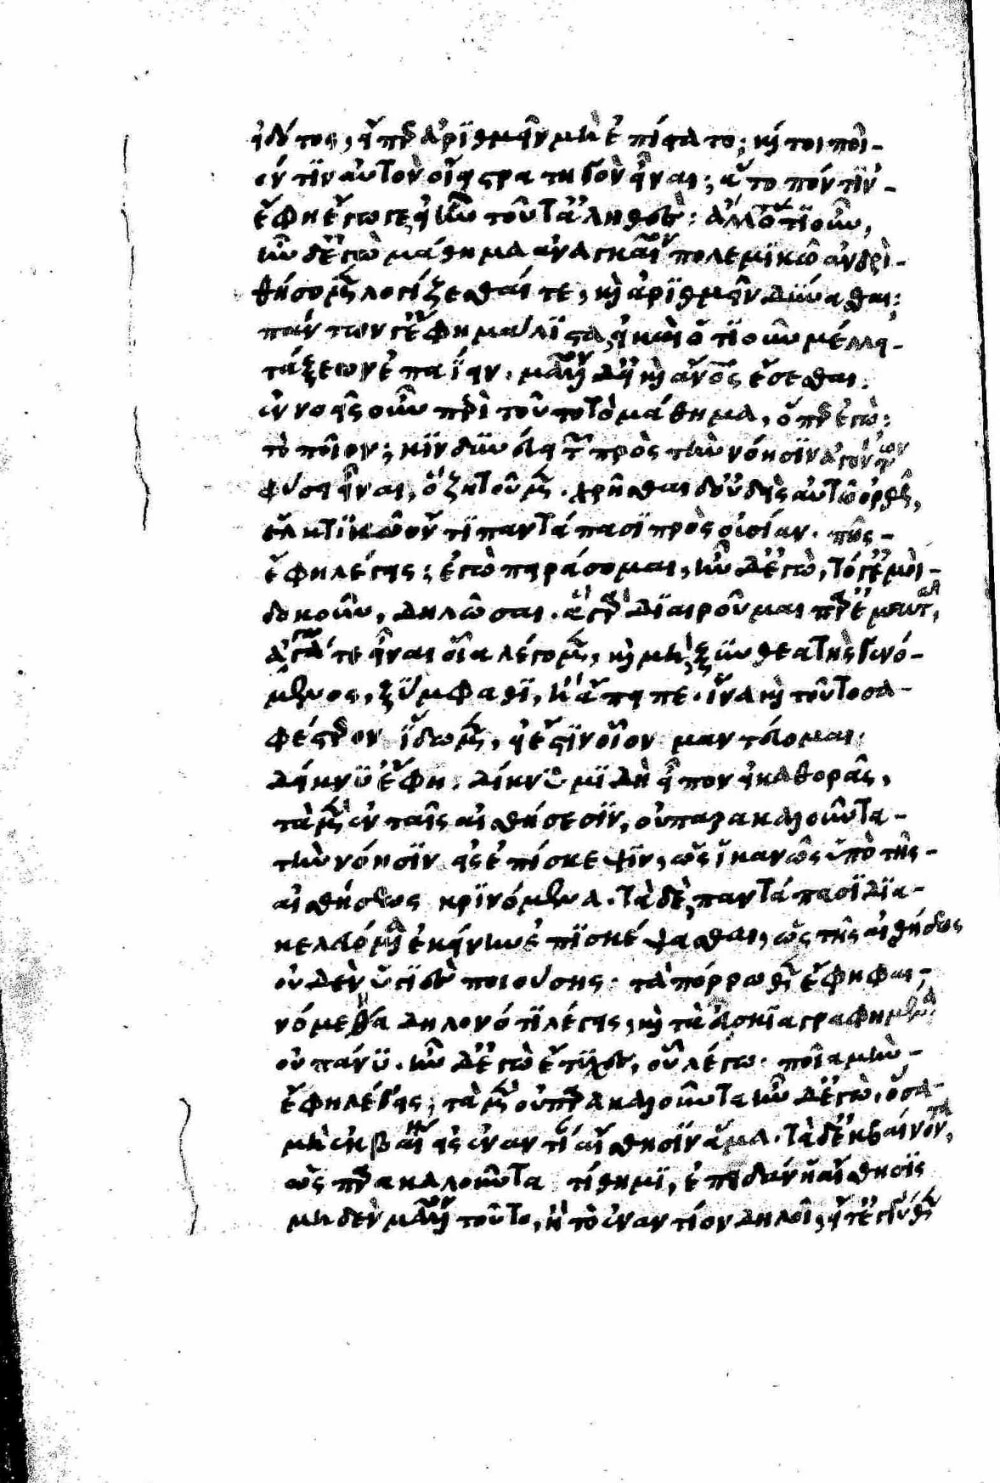 εἰδότος, εἴπερ ἀριθμεῖν μὴ ἐπίστατο; καίτοι ποῖ-
όν τιν' αὐτὸν οἴει στρατηγὸν εἶναι; ἄτοπόν τιν'
ἔφη ἔγωγε εἰ ἦν τοῦτ' ἀληθές· ἄλλο τι οὖν,
ἦν δ' ἐγὼ μάθημα ἀναγκαῖον πολεμικῶ ἀνδρὶ
θήσομεν λογίζεσθαί τε, καὶ ἀριθμεῖν δύνασθαι;
πάντων γ' ἔφη μάλιστα, εἰ καὶ ὁτιοῦν μέλλει
τάξεων ἐπαΐειν. μᾶλλον δὲ καὶ ἄνθρωπος ἔσεσθαι.
ἐννοεῖς οὖν περὶ τοῦτο τὸ μάθημα, ὅπερ ἐγώ;
τὸ ποῖον; κινδυνεύει τῶν πρὸς τὴν νόησιν ἀγόντων
φύσει εἶναι, ὃ ζητοῦμεν. χρῆσθαι δ' οὐδεὶς αὐτῶ ὀρθῶς,
ἑλκτικῶ ὄντι παντάπασι πρὸς οὐσίαν. πῶς
ἔφη λέγεις; ἐγὼ πειράσομαι, ἦν δ' ἐγὼ, τό γ' ἐμοὶ
δοκοῦν, δηλῶσαι. ἃ γὰρ διαιροῦμαι παρ' ἐμαυτῶ,
ἀγωγά τε εἶναι οἷ λέγομεν, καὶ μὴ, ξυνθεατὴς γενό-
μενος, ξύμφαθι, ἢ ἄπειπε. ἵνα καὶ τοῦτο σα-
φέστερον ἴδωμεν, εἰ ἔστιν οἷον μαντεύομαι.
δείκνυ ἔφη. δείκνυμι δὴ εἶπον εἰ καθορᾷς,
τὰ μὲν ἐν ταῖς αἰσθήσεσιν, οὐ παρακαλοῦντα
τὴν νόησιν εἰς ἐπίσκεψιν, ὡς ἱκανῶς ὑπὸ τῆς
αἰσθήσεως κρινόμενα. τὰ δὲ, παντάπασι δια-
κελευόμενα ἐκείνην ἐπισκέψασθαι, ὡς τῆς αἰσθήσεως
οὐδὲν ὑγιὲς ποιούσης. τὰ πόρρωθεν ἔφη φαι-
νόμενα δηλονότι λέγεις, καὶ τὰ ἐσκιαγραφημένα.
οὐ πάνυ. ἦν δ' ἐγὼ ἔτυχες, οὗ λέγω. ποῖα μὴν
ἔφη λέγεις; τὰ μὲν οὐ παρακαλοῦντα ἦν δ' ἐγὼ, ὅσα
μὴ ἐκβαίνει εἰς ἐναντίαν αἴσθησιν ἅμα. τὰ δ' ἐκβαίνοντα,
ὡς παρακαλοῦντα τίθημι, ἐπειδὰν ἡ αἴσθησις
μηδὲν μᾶλλον τοῦτο, ἢ τὸ ἐναντίον δηλοῖ, εἴτε ἐγγύθεν